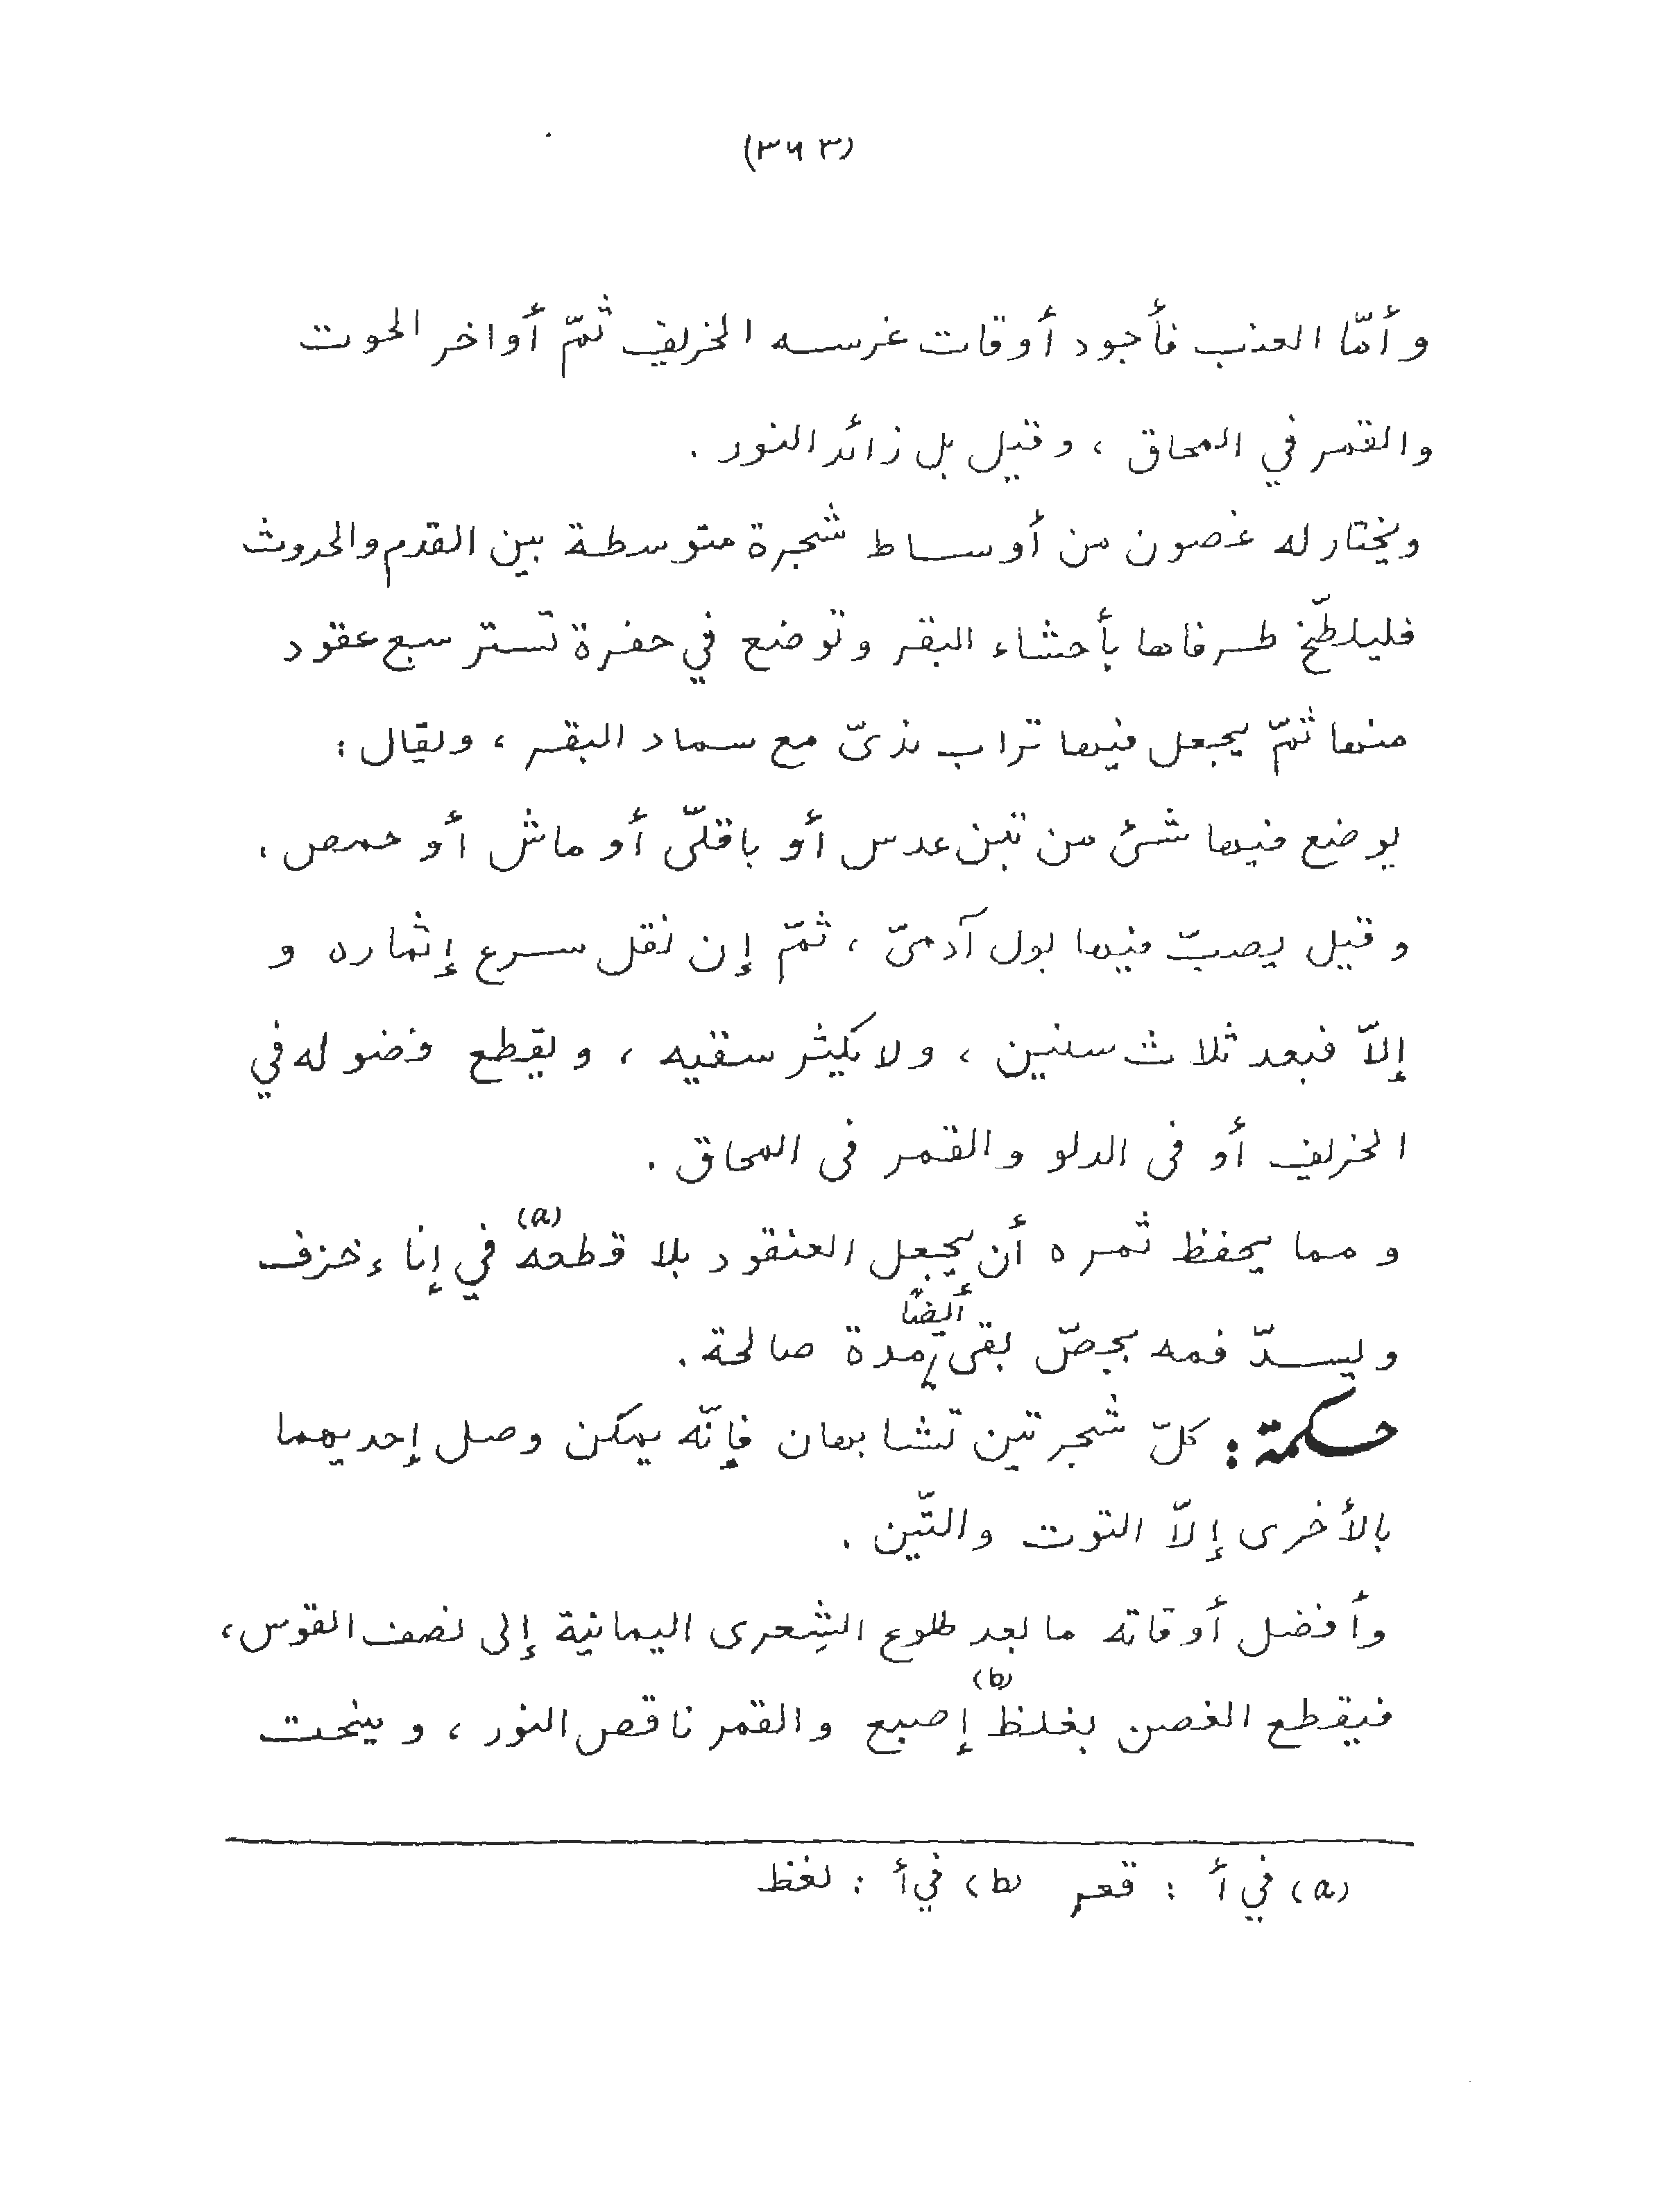 (٣٦٣)
وأمّا العذب فأجود أوقات غرسه الخريف ثمّ أواخر الحوت
والقمر في المحاق ، وقيل بل زائد النور .
ويختار له غصون من أوساط شجرة متوسطة بين القدم والحدوث
فليلطّخ طرفاها بأحشاء البقر وتوضع في حفرة تستر سبع عقود
منها ثمّ يجعل فيها تراب نديّ مع سماد البقر ، ويقال :
يوضع فيها شئ من تبن عدس أو باقلّى أو ماش أو حمص .
وقيل يصبّ فيها بول آدميّ ، ثمّ إن نقل سرع إثماره و
إلاّ فبعد ثلاث سنين ، ولا يكثر سقيه ، ويقطع فضوله في
الخريف أو في الدلو والقمر في المحاق .
و مما يحفظ ثمره أن يجعل العنقود بلا قطعه (a) في إناء خزف
ويسدّ فمه بجصّ بقى أيضًا مدة صالحة .
حكمة : كلّ شجرتين تشابهان فإنّه يمكن وصل إحديهما
بالأخرى إلاّ التوت والتّين .
وأفضل أوقاته ما بعد طلوع الشِعرى اليمانية إلى نصف القوس ،
فيقطع الغصن بغلظ (b) إصبع والقمر ناقص النور ، وينحت
(a) في أ : قعم (b) في أ : لغظ